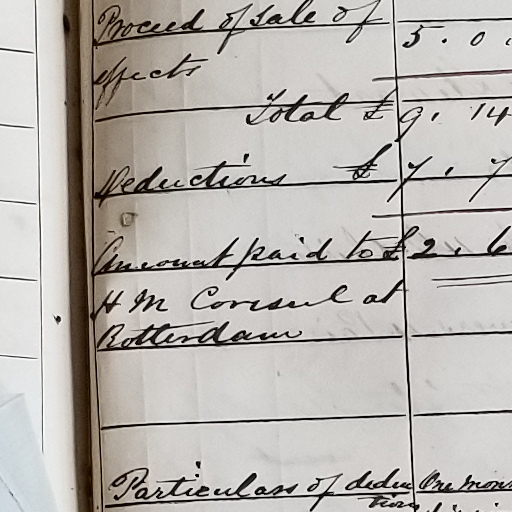 Proceed of Sale of
effects 5 . 0
Total £ 9 . 14
Deductions £ 7 . 7
Amount paid to £ 2 . 6
H M Consul at
Rotterdam
Particulars of deduc One mon
tions